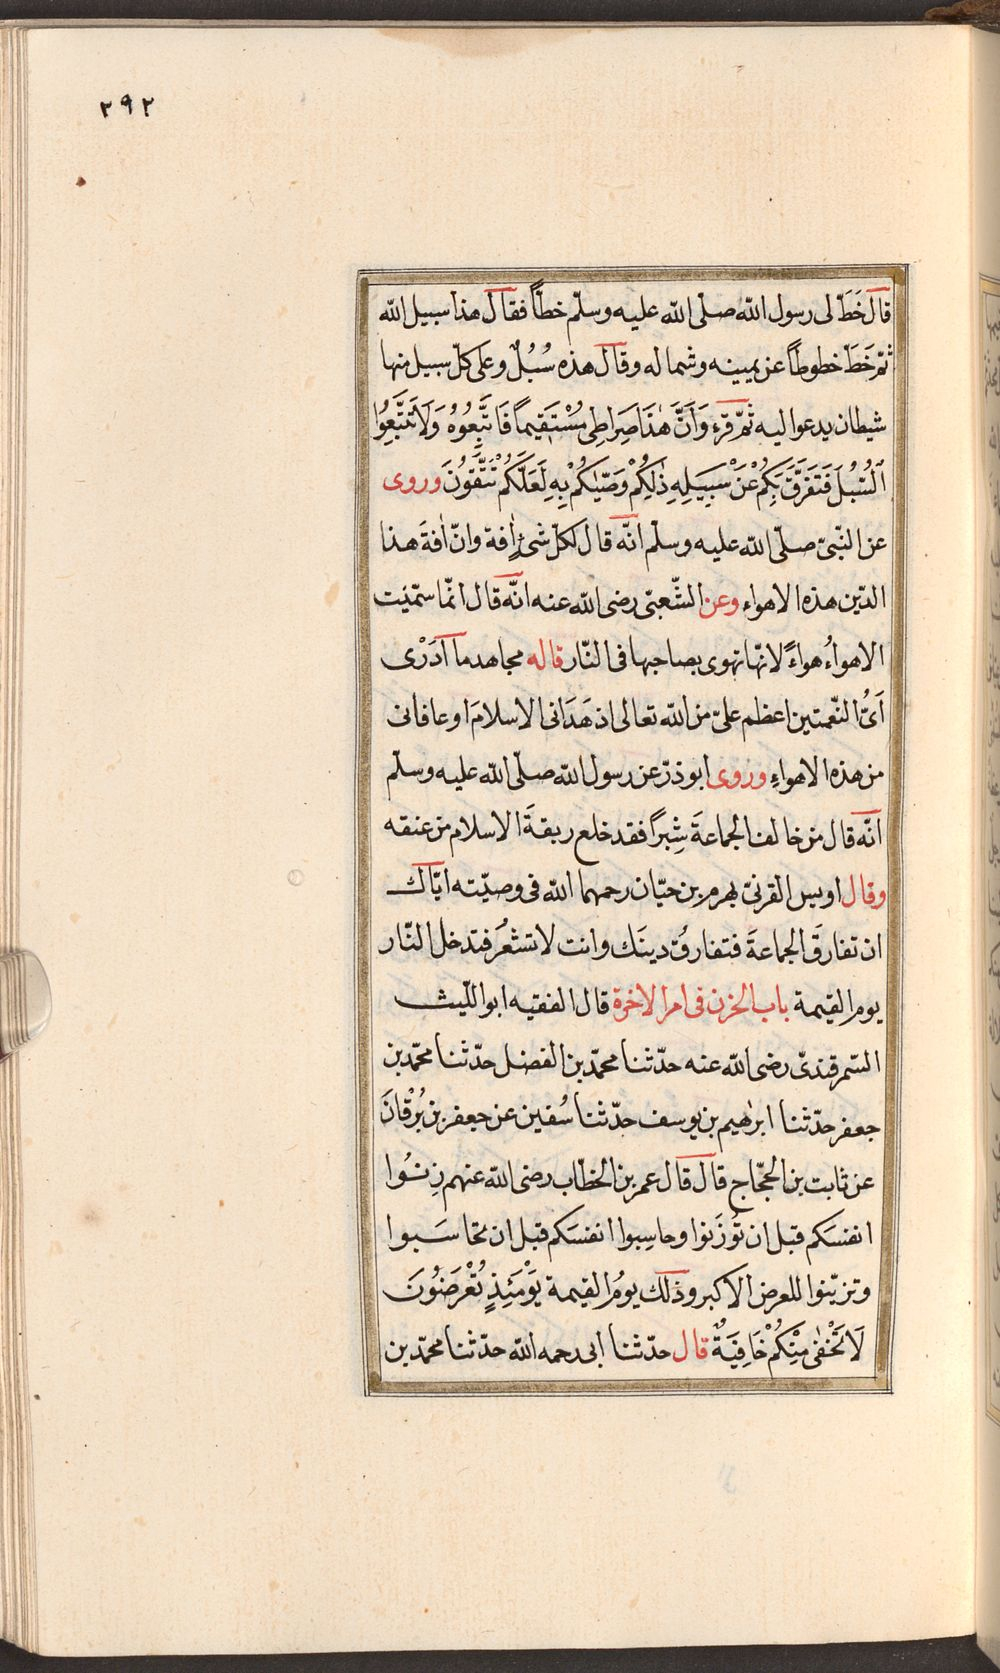 ٢٩٢
قال خَطّ لى رسول الله صلّى الله عليه وسلّم خطّاً فقال هذا سبيل الله
ثمّ خَطّ خطوطاً عن يمينه وشماله وقال هذه سُبُلٌ وعلى كلّ سبيل منها
شيطان يدعوا ليه ثمّ قرء وَاَنَّ هٰذَا صِرَاطِى مُسْتَقِيماً فَاتَّبِعُوهُ وَلَا تَتَّبِعُوا
السُّبُلَ فَتَفَرَّقَ بِكُمْ عَنْ سَبِيلِهِ ذٰلِكُمْ وَصّٰيكُمْ بِهِ لَعَلَّكُمْ تَتَّقُونَ وروى
عن النّبىّ صلّى الله عليه وسلّم انّه قال لكلّ شئ اٰفة وانّ اٰفةَ هذا
الدّين هذه الاهواء وعن الشّعبىّ رضى الله عنه انّه قال انّما سمّيت
الاهواءُ هواءً لانّها تهوى بصاحبها فى النّار قاله مجاهد ما اَدَرْى
اَىُّ النّعمتين اعظم علىّ من الله تعالى اذ هَدَانى الاسلامَ او عافانى
من هذه الاهواءِ وروى ابو ذرّ عن رسول الله صلّى الله عليه وسلّم
انّه قال من خالف الجماعةَ شِبراً فقد خلع ربقةَ الاسلام من عنقه
وقال اويس القرنىّ لهرم بن حيّان رحمهما الله فى وصيّته ايّاك
ان تفارقَ الجماعةَ فتفارقُ دينَك وانت لا تشعُر فتدخل النّار
يوم القيمة باب الحزن فى امر الاخرة قال الفقيه ابو اللّيث
السّمرقندىّ رضى الله عنه حدّثنا محمّد بن الفضل حدّثنا محمّد بن
جعفر حدّثنا ابرٰهيم بن يوسف حدّثنا سُفين عن جعفر بن بُرْقانَ
عن ثابت بن الحجّاج قال قال عمر بن الخطّاب رضى الله عنهم زِنُوا
انفسَكم قبل ان تُوزَنوا وحاسِبوا انفسَكم قبل ان تحاسَبوا
وتزيّنوا للعرض الاكبر وذلك يومُ القيمة يَوْمَئِذٍ تُعْرَضُونَ
لَا تَخْفٰى مِنْكُمْ خَافِيَةٌ قال حدّثنا ابى رحمه الله حدّثنا محمّد بن